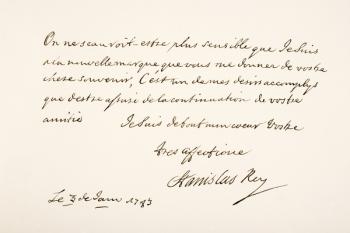 On ne scauroit estre plus sensible que Je Suis
a la nouvelle marque que vous me donner de vostre
chere souvenir, C'est un de mes desirs accomplys
que d'estre assuré de la continuation de vostre
amitié Je Suis de tout mon coeur Vostre
tres affectione
Stanislas Roy
Le de Janv